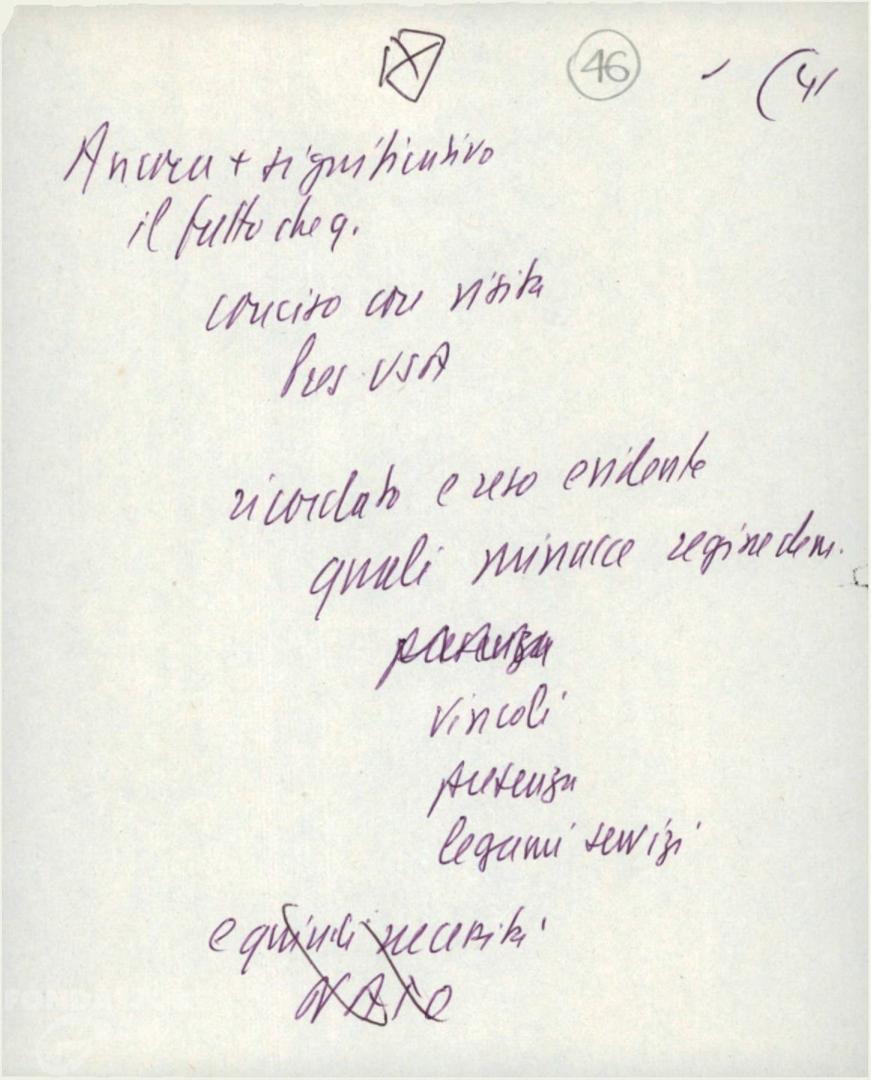 46
Ancora + significativo
il fatto che q.
conciso con visita
Pres USA
ricordato e reso evidente
quali minacce regime dem.
presenza
vincoli
presenza
legami servizi
e quindi necessità
NATO